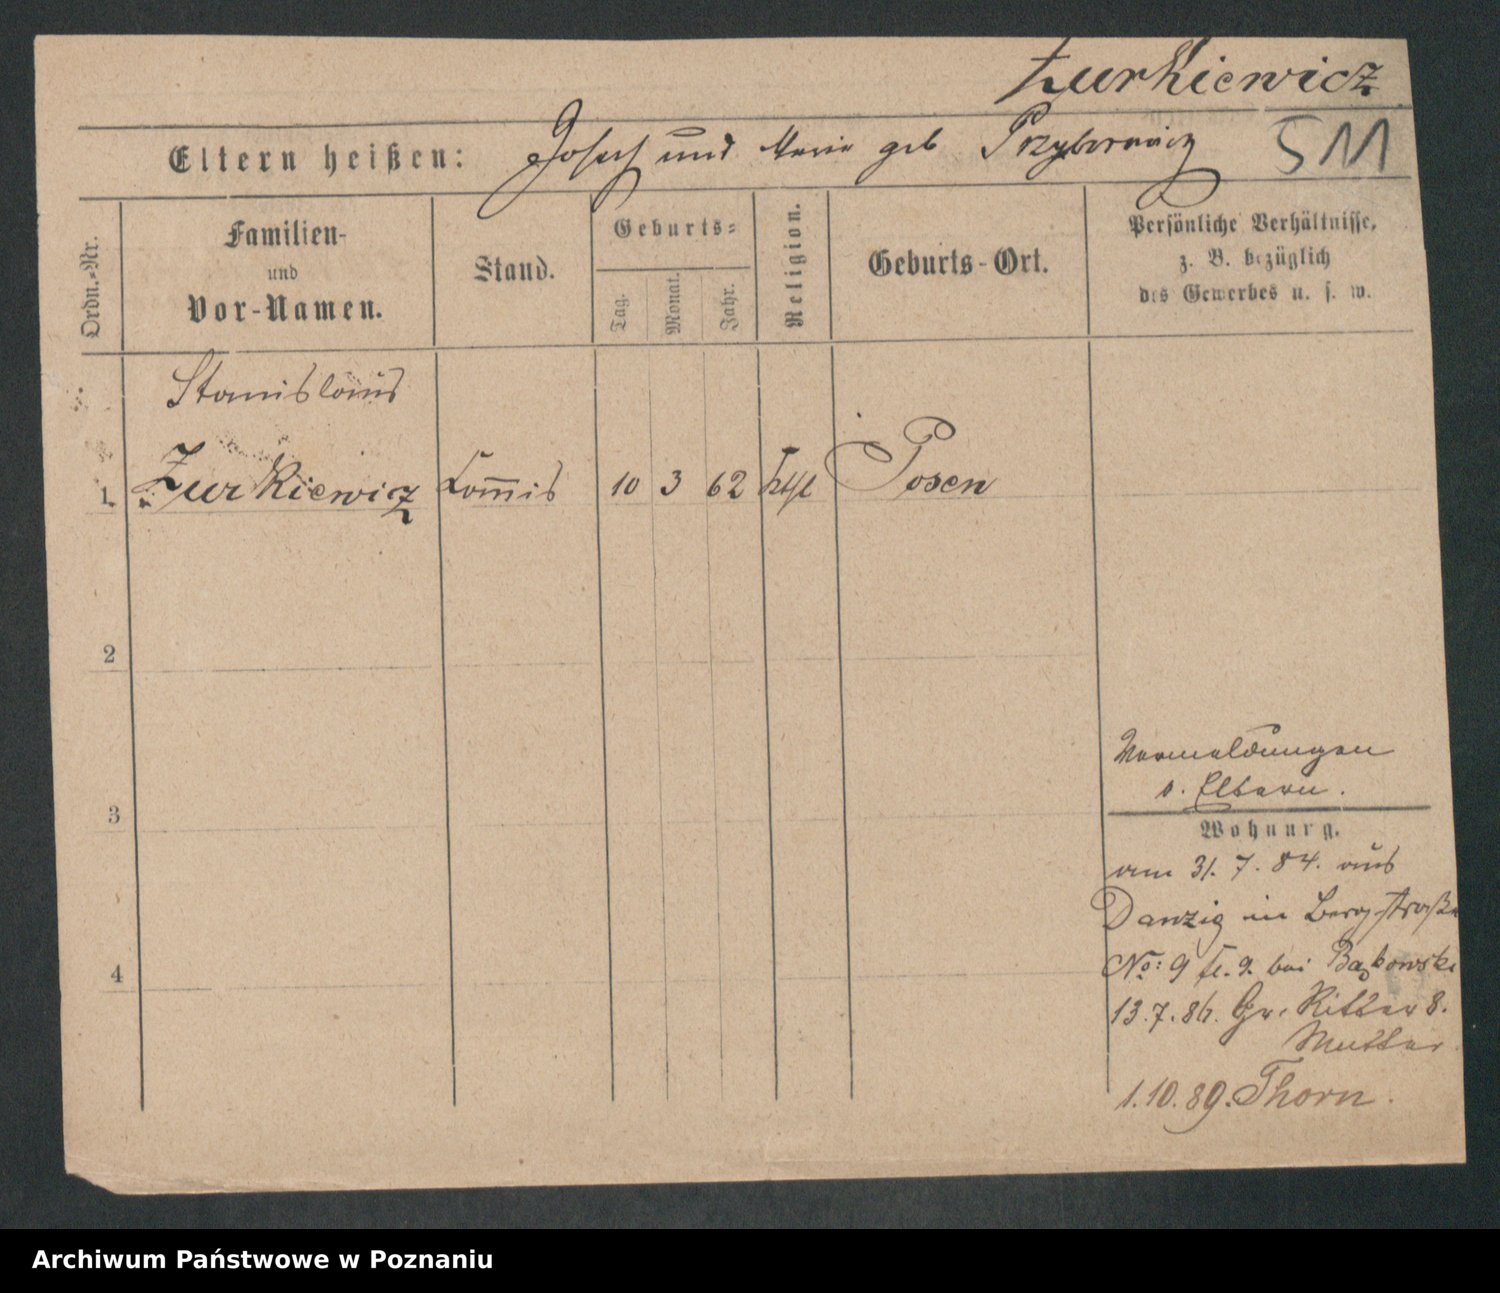 Zurkiewicz
Eltern heißen: Joseph und Marie geb Przyborowicz 511
Ordn.-Nr.
Familien-
und
Vor-Namen.
Stand.
Geburts-
Tag.
Monat.
Jahr.
Religion.
Geburts-Ort.
Persönliche Verhältnisse,
z. B. bezüglich
des Gewerbes u. s. w.
Stanislaus
1. Zurkiewicz Commis 10 3 62 kthl Posen
2
3
4
Vermeldungen
s. Eltern.
Wohnung.
am 31. 7. 84. aus
Danzig in Bergstraße
No: 9 bei Bąkowski
13. 7. 86. Gr. Ritter 8.
Mutter
1. 10. 89. Thorn.
Archiwum Państwowe w Poznaniu